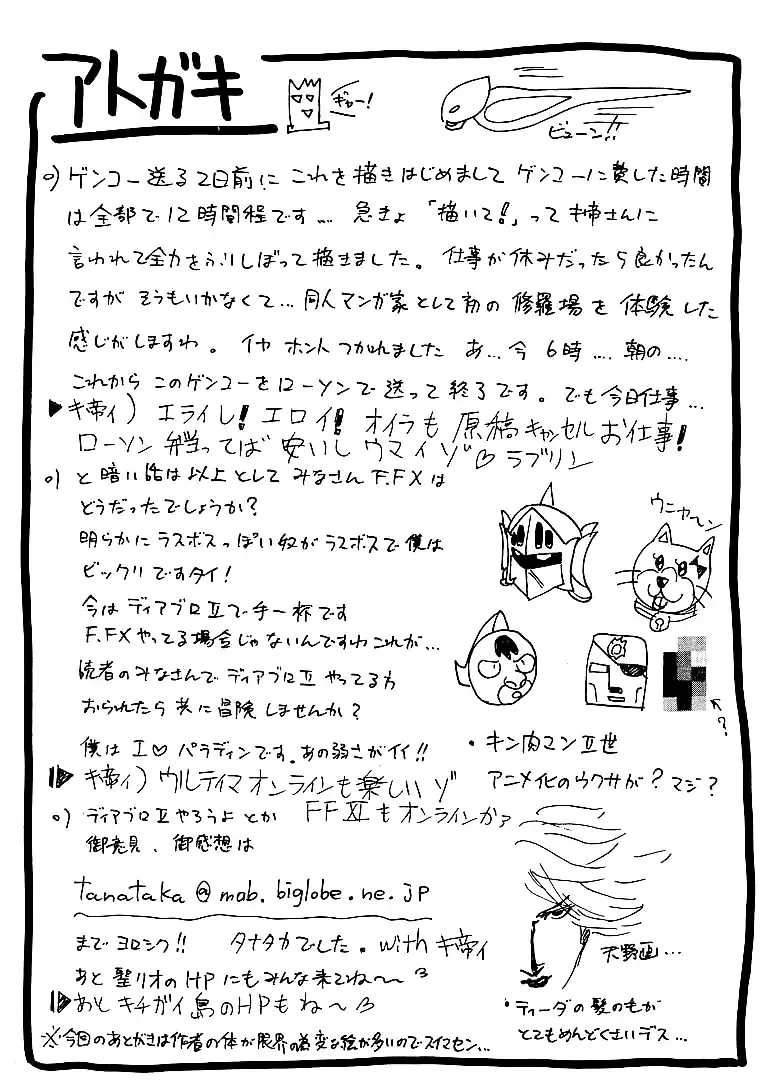 アトガキ
ギャー!
ビューン!!
o) ゲンコー送る2日前に これを描きはじめまして ゲンコーに費した時間
は全部で12時間程です… 急きょ 「描いて!」って キ帝さんに
言われて全力をふりしぼって描きました。 仕事が休みだったら良かったん
ですが そうもいかなくて… 同人マンガ家として初の 修羅場を 体験した
感じがしますわ。 イヤ ホント つかれました あ… 今 6時…. 朝の….
これから このゲンコーをローソンで送って終了です。 でも今日仕事…
▶キ帝ィ) エライし! エロイ! オイラも 原稿キャンセル お仕事!
ローソン弁当ってば 安いし ウマイゾ♡ ラブリン
o) と暗い話は以上として みなさん F.FXは
どうだったでしょうか?
明らかに ラスボスっぽい奴が ラスボスで 僕は
ビックリですタイ!
今は ディアブロⅡで手一杯です
F.FXやってる場合じゃないんですわこれが…
読者のみなさんで ディアブロⅡ やってる方
おられたら 共に冒険しませんか?
僕は I♡ パラディンです。あの弱さがイイ!!
ウニャ〜ン
↖?
・キン肉マンⅡ世
アニメ化のウワサが? マジ?
▶キ帝ィ) ウルティマオンラインも楽しいゾ
FFXIもオンラインか?
o) ディアブロⅡやろうよ とか
御意見、御感想は
tanataka@mob.biglobe.ne.jp
まで ヨロシク!! タナタカでした。with キ帝ィ
あと 聖リオのHPにもみんな来てね〜
▶あと キチガイ島のHPもね〜
天野画…
・ティーダの髪のもが
とてもめんどくさいデス…
※今回のあとがきは作者の体が限界の為変な絵が多いのでスイマセン…